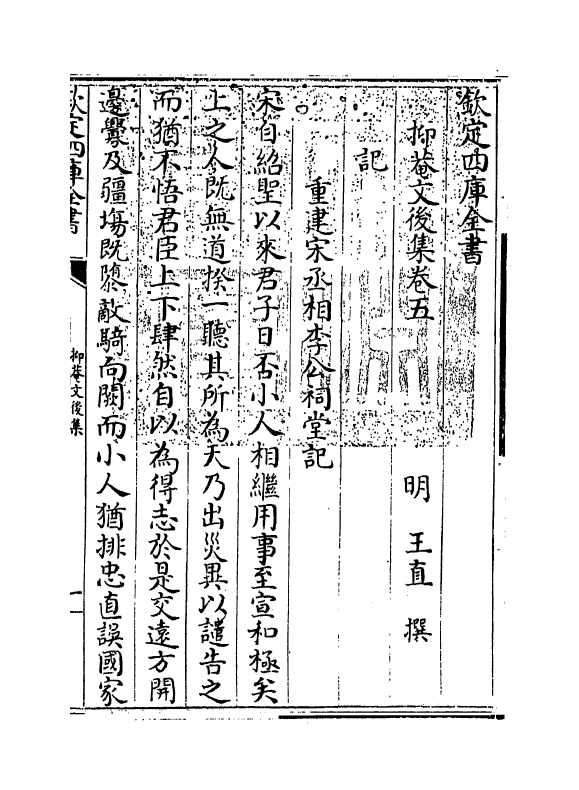 欽定四庫全書
抑菴文後集卷五
明 王直 撰
記
重建宋丞相李公祠堂記
宋自紹聖以來君子日否小人相繼用事至宣和極矣
上之人既無道揆一聽其所為天乃出災異以譴告之
而猶不悟君臣上下肆然自以為得志於是交遠方開
邊釁及疆埸既隳敵騎向闕而小人猶排忠直誤國家
欽定四庫全書
抑菴文後集
一